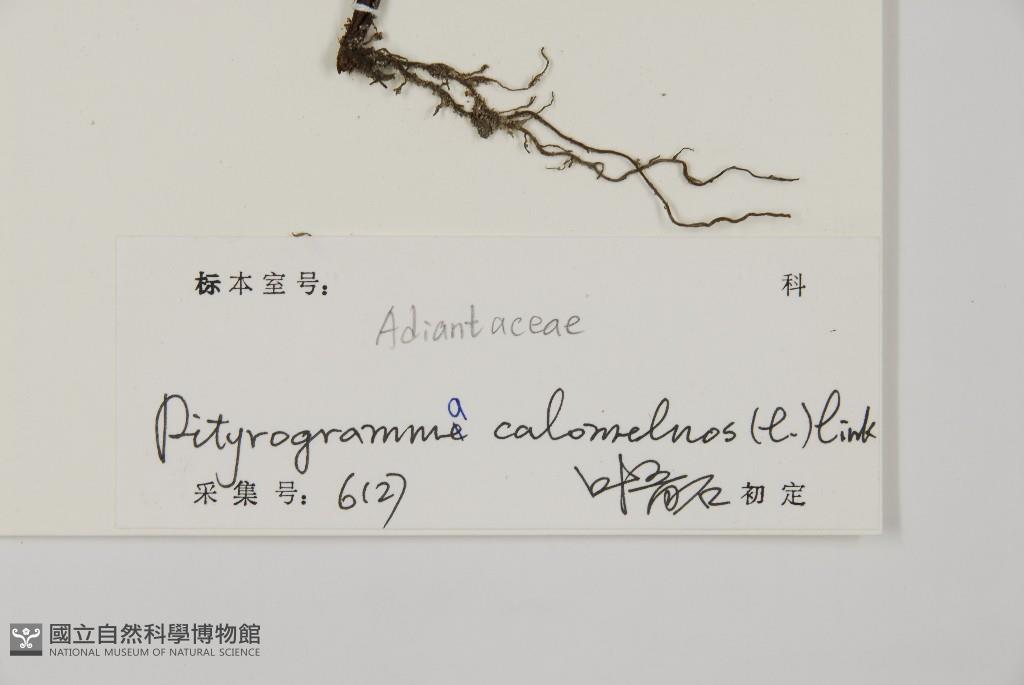 标本室号: 科
Adiantaceae
Pityrogramma calomelnos (L.) Link
采集号: 6(2) 叶 初定
國立自然科學博物館
NATIONAL MUSEUM OF NATURAL SCIENCE